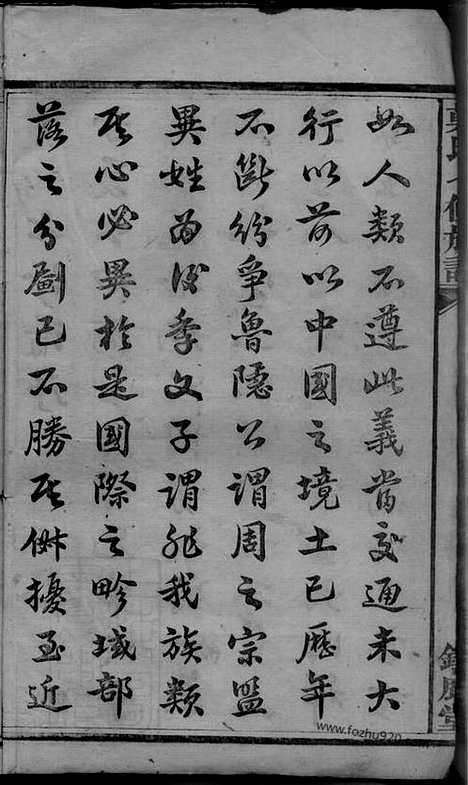 如人類不遵此義當交通未大
行以前以中國之境土已歷年
不斷紛爭魯隱公謂周之宗盟
異姓為後季文子謂非我族類
其心必異於是國際之畛域部
落之分劃已不勝其紛擾至近
氏七修族譜
堂
www.fozhu920.com